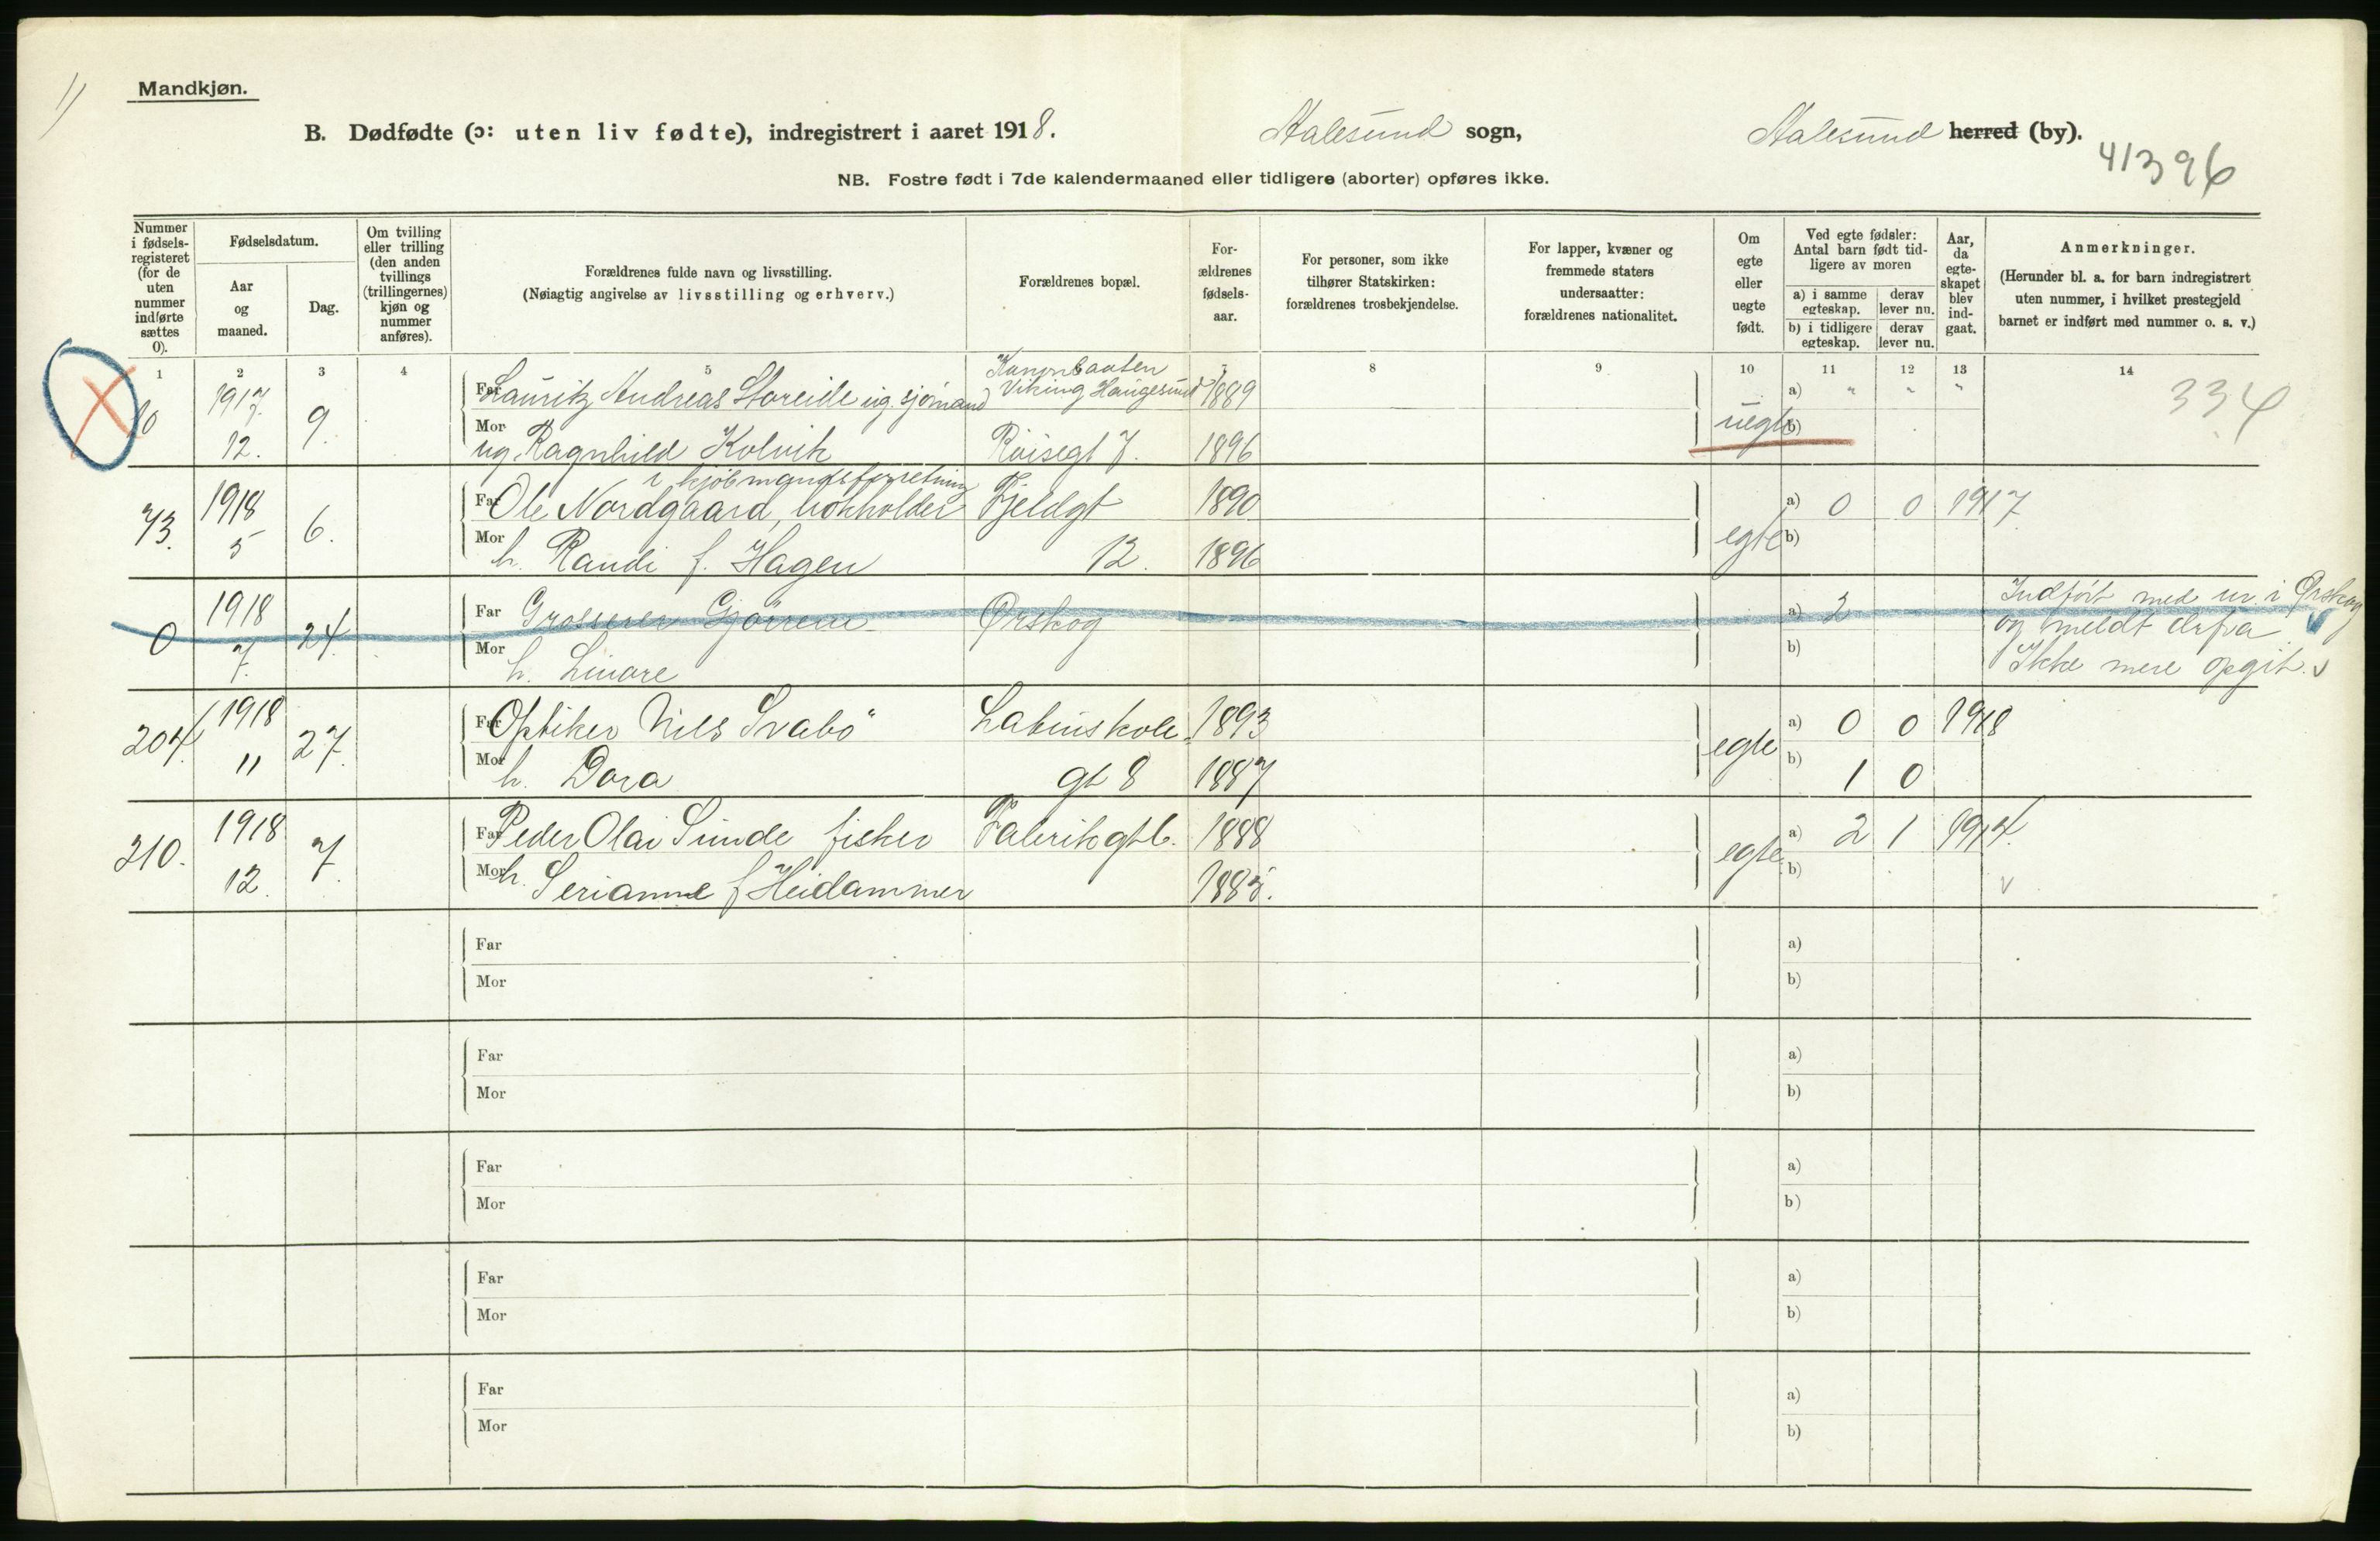 1)
Mandkjøn.
B. Dødfødte (ɔ: uten liv fødte), indregistrert i aaret 1918. Aalesund sogn, Aalesund herred (by).
41396
NB. Fostre født i 7de kalendermaaned eller tidligere (aborter) opføres ikke.
Nummer i fødsels-registeret (for de uten nummer indførte sættes 0).
Fødselsdatum.
Aar og maaned.
Dag.
Om tvilling eller trilling (den anden tvillings (trillingernes) kjøn og nummer anføres).
Forældrenes fulde navn og livsstilling.
(Nøiagtig angivelse av livsstilling og erhverv.)
Forældrenes bopæl.
For-ældrenes fødsels-aar.
For personer, som ikke tilhører Statskirken: forældrenes trosbekjendelse.
For lapper, kvæner og fremmede staters undersaatter: forældrenes nationalitet.
Om egte eller uegte født.
Ved egte fødsler: Antal barn født tid-ligere av moren
a) i samme egteskap. derav lever nu.
b) i tidligere egteskap. derav lever nu.
Aar, da egte-skapet blev ind-gaat.
Anmerkninger.
(Herunder bl. a. for barn indregistrert uten nummer, i hvilket prestegjeld barnet er indført med nummer o. s. v.)
1 2 3 4 5 7 8 9 10 11 12 13 14
Kanonbaaten
0 1917 9. Far Lauritz Andreas Storeide ug. sjømand Viking Haugesund 1889 a) " " " 334
12. Mor ug. Ragnhild Kolvik 7. 1896 uegte b)
i kjøbmandsforretning
73. 1918 6. Far Ole Nordgaard, bokholder Fjeldgt 1890 a) 0 0 1917
5 Mor h. Randi f. Hagen 12. 1896 egte b)
0 1918 24 Far Grosserer Ørskog a) 2 Indført med nr. i Ørskog
7. Mor h. b) og meldt derfra
Ikke mere opgit. v
204. 1918 27. Far Optiker Nils Svabö Latinskole 1893 egte a) 0 0 1918
11 Mor h. Dora gt 8 1887 b) 1 0
210. 1918 7. Far Peder Olai Sunde fisker Fabrikgt 6. 1888 egte a) 2 1 1914.
12. Mor h. Serianne f Heidammer 1885. b) v
Far a)
Mor b)
Far a)
Mor b)
Far a)
Mor b)
Far a)
Mor b)
Far a)
Mor b)